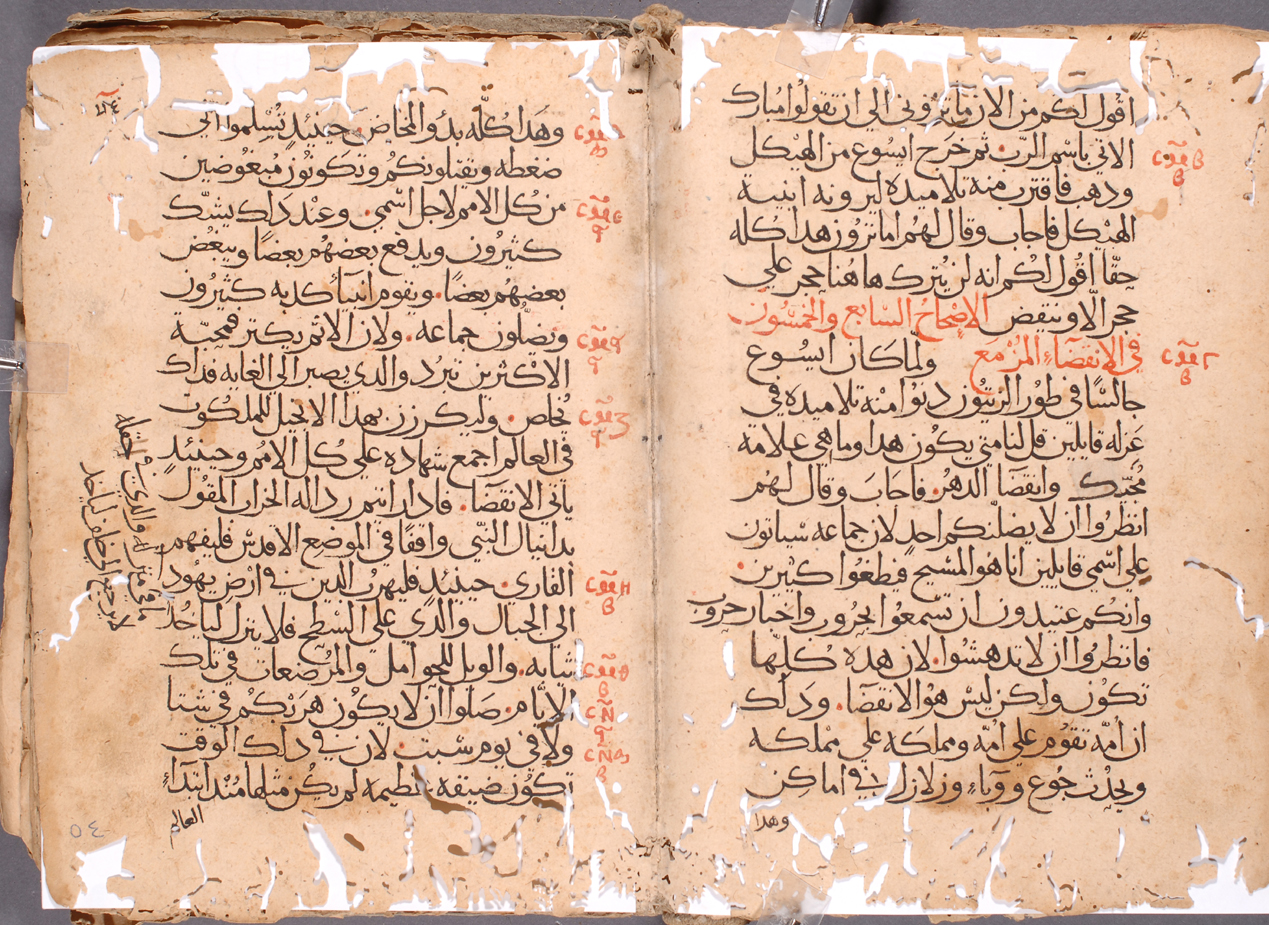 اقول لكم من الان ما تروني الي ان تقولوا مبارك
الاتي باسم الرب. ثم خرج ايسوع من الهيكل
ودهب فاقترب منه تلاميده ليرونه ابنية
الهيكل فاجاب وقال لهم اما ترون هدا كله
حقّا اقول لكم انه لن يترك هاهنا حجر علي
حجر الّا وينقض الاصحاح السابع والخمسون
في الانقضاء المزمع ولما كان ايسوع
جالسًا في طور الزيتون دنوا منه تلاميده في
عزله قايلين قل لنا متي يكون هدا وما هي علامة
مجيّك وانقضا الدهر. فاجاب وقال لهم
انظروا ان لا يضلنكم احد لان جماعه سياتون
علي اسمي قايلين انا هو المسيح فطغوا كثيرين.
وانكم عتيدون ان تسمعوا بحروب واخبار حروب
فانظروا ان لا تدهشوا. لان هده كلها
تكون ولكن ليس هو الانقضا. ودلك
ان امّه تقوم علي امّه ومملكه علي مملكه
ويحدث جوع ووباء وزلازل في اماكن
وهدا
وهدا كلّه بدو المخاض. حينيدٍ تسلموا الي
ضغطه ويقتلونكم وتكونون مبغوضين
من كل الامم لاجل اسمي. وعند داك يشك
كثيرون ويدفع بعضهم بعضًا ويبغض
بعضهم بعضًا. ويقوم انبيا كدبه كثيرون
ويضلون جماعه. ولان الاثم يكثر فمحبّة
الاكثرين تبرد والدي يصبر الي الغايه فداك
يخلص. وليكرزن بهدا الانجيل للملكوت
في العالم اجمع شهاده علي كل الامم وحينيدٍ
ياتي الانقضا. فادا رايتم رداله الخراب المقول
بدانيال النبّي واقفًا في الموضع الاقدس فليفهم
القاري. حينيدٍ فليهرب الدين في ارض يهود
الي الجبال والدي علي السطح فلا ينزل لياخد
ثيابه. والويل للحوامل والمرضعات في تلك
الايام. صلوا ان لا يكون هربكم في شتا
ولا في يوم سبت. لان في دلك الوقت
تكون ضيقه عظيمه لم يكن مثلها مند ابتداء
العالم
٥٤